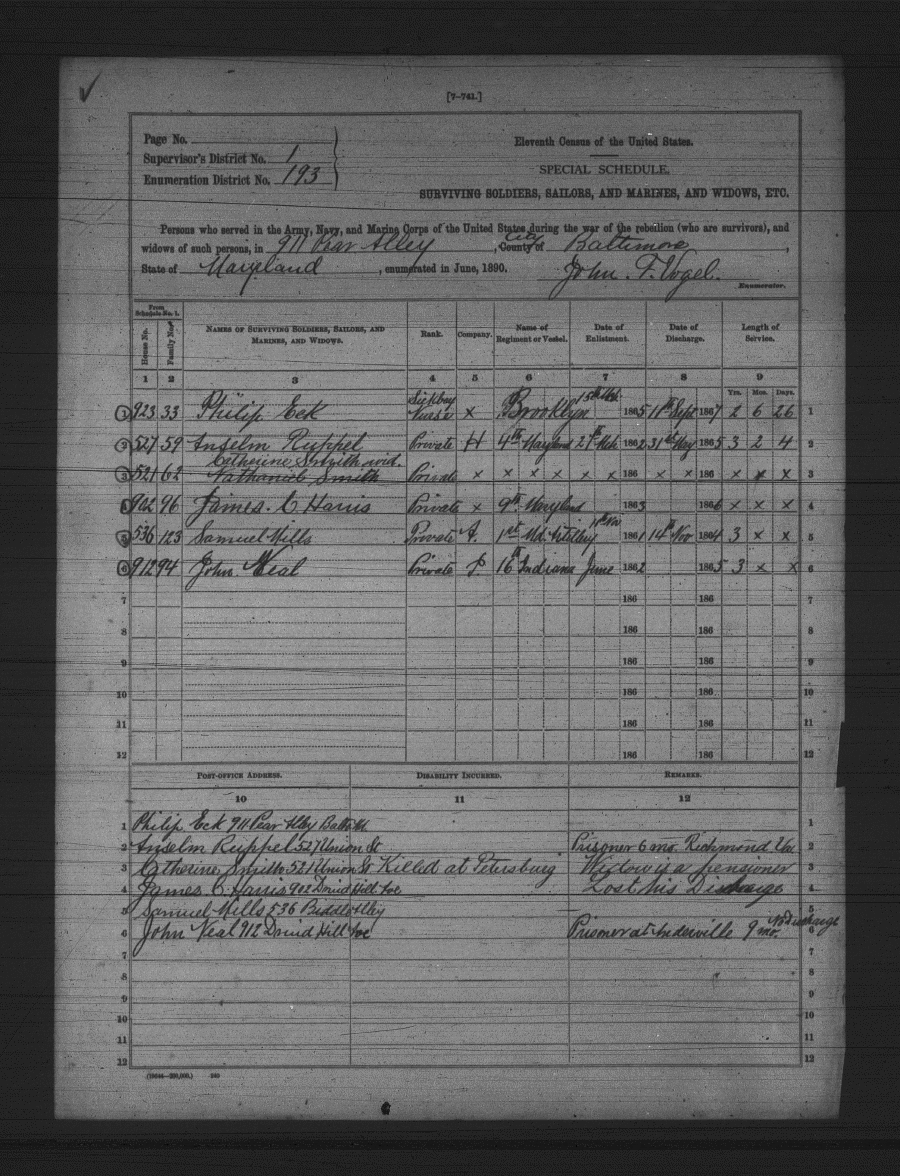 [7-741.]
Page No.
Supervisor's District No. 1
Enumeration District No. 193
Eleventh Census of the United States.
SPECIAL SCHEDULE.
SURVIVING SOLDIERS, SAILORS, AND MARINES, AND WIDOWS, ETC.
Persons who served in the Army, Navy, and Marine Corps of the United States during the war of the rebellion (who are survivors), and
widows of such persons, in 911 Pear Alley, City County of Baltimore,
State of Maryland, enumerated in June, 1890. John. F. Vogel.
Enumerator.
From Schedule No. 1.
House No. Family No. NAMES OF SURVIVING SOLDIERS, SAILORS, AND MARINES, AND WIDOWS. Rank. Company. Name of Regiment or Vessel. Date of Enlistment. Date of Discharge. Length of Service.
1 2 3 4 5 6 7 8 9
Yrs. Mos. Days.
1 923 33 Philip Eck Nurse x Brooklyn 1865 11th Sept 1867 2 6 26 1
2 527 59 Anselm Ruppel Private H 4th Maryland 27th 1862 31st May 1865 3 2 4 2
Catherine Smith wid.
3 521 62 Nathaniel Smith Private x x x x x x x x x x x 3
902 96 James. C Harris Private x 9th Maryland 1863 1866 x x x 4
5 536 123 Samuel Mills Private A. 1st Md. Artillery 1861 14th Nov 1864 3 x x 5
6 912 94 John Neal Private 16th Indiana June 1862 1865 3 x x 6
7 186 186 7
8 186 186 8
9 186 186 9
10 186 186 10
11 186 186 11
12 186 186 12
POST-OFFICE ADDRESS. DISABILITY INCURRED. REMARKS.
10 11 12
1 Philip Eck 911 Pear Alley Balto Md. 1
2 Anselm Ruppel 527 Union St Prisoner 6 mo. Richmond Va 2
3 Catherine Smith 521 Union St Killed at Petersburg Widow is a pensioner 3
4 James C Harris 902 Druid Hill Ave Lost his Discharge 4
5 Samuel Mills 536 Biddle Alley 5
6 John Neal 912 Druid Hill Ave Prisoner at Anderville 9 mo. No discharge 6
7 7
8 8
9 9
10 10
11 11
12 12